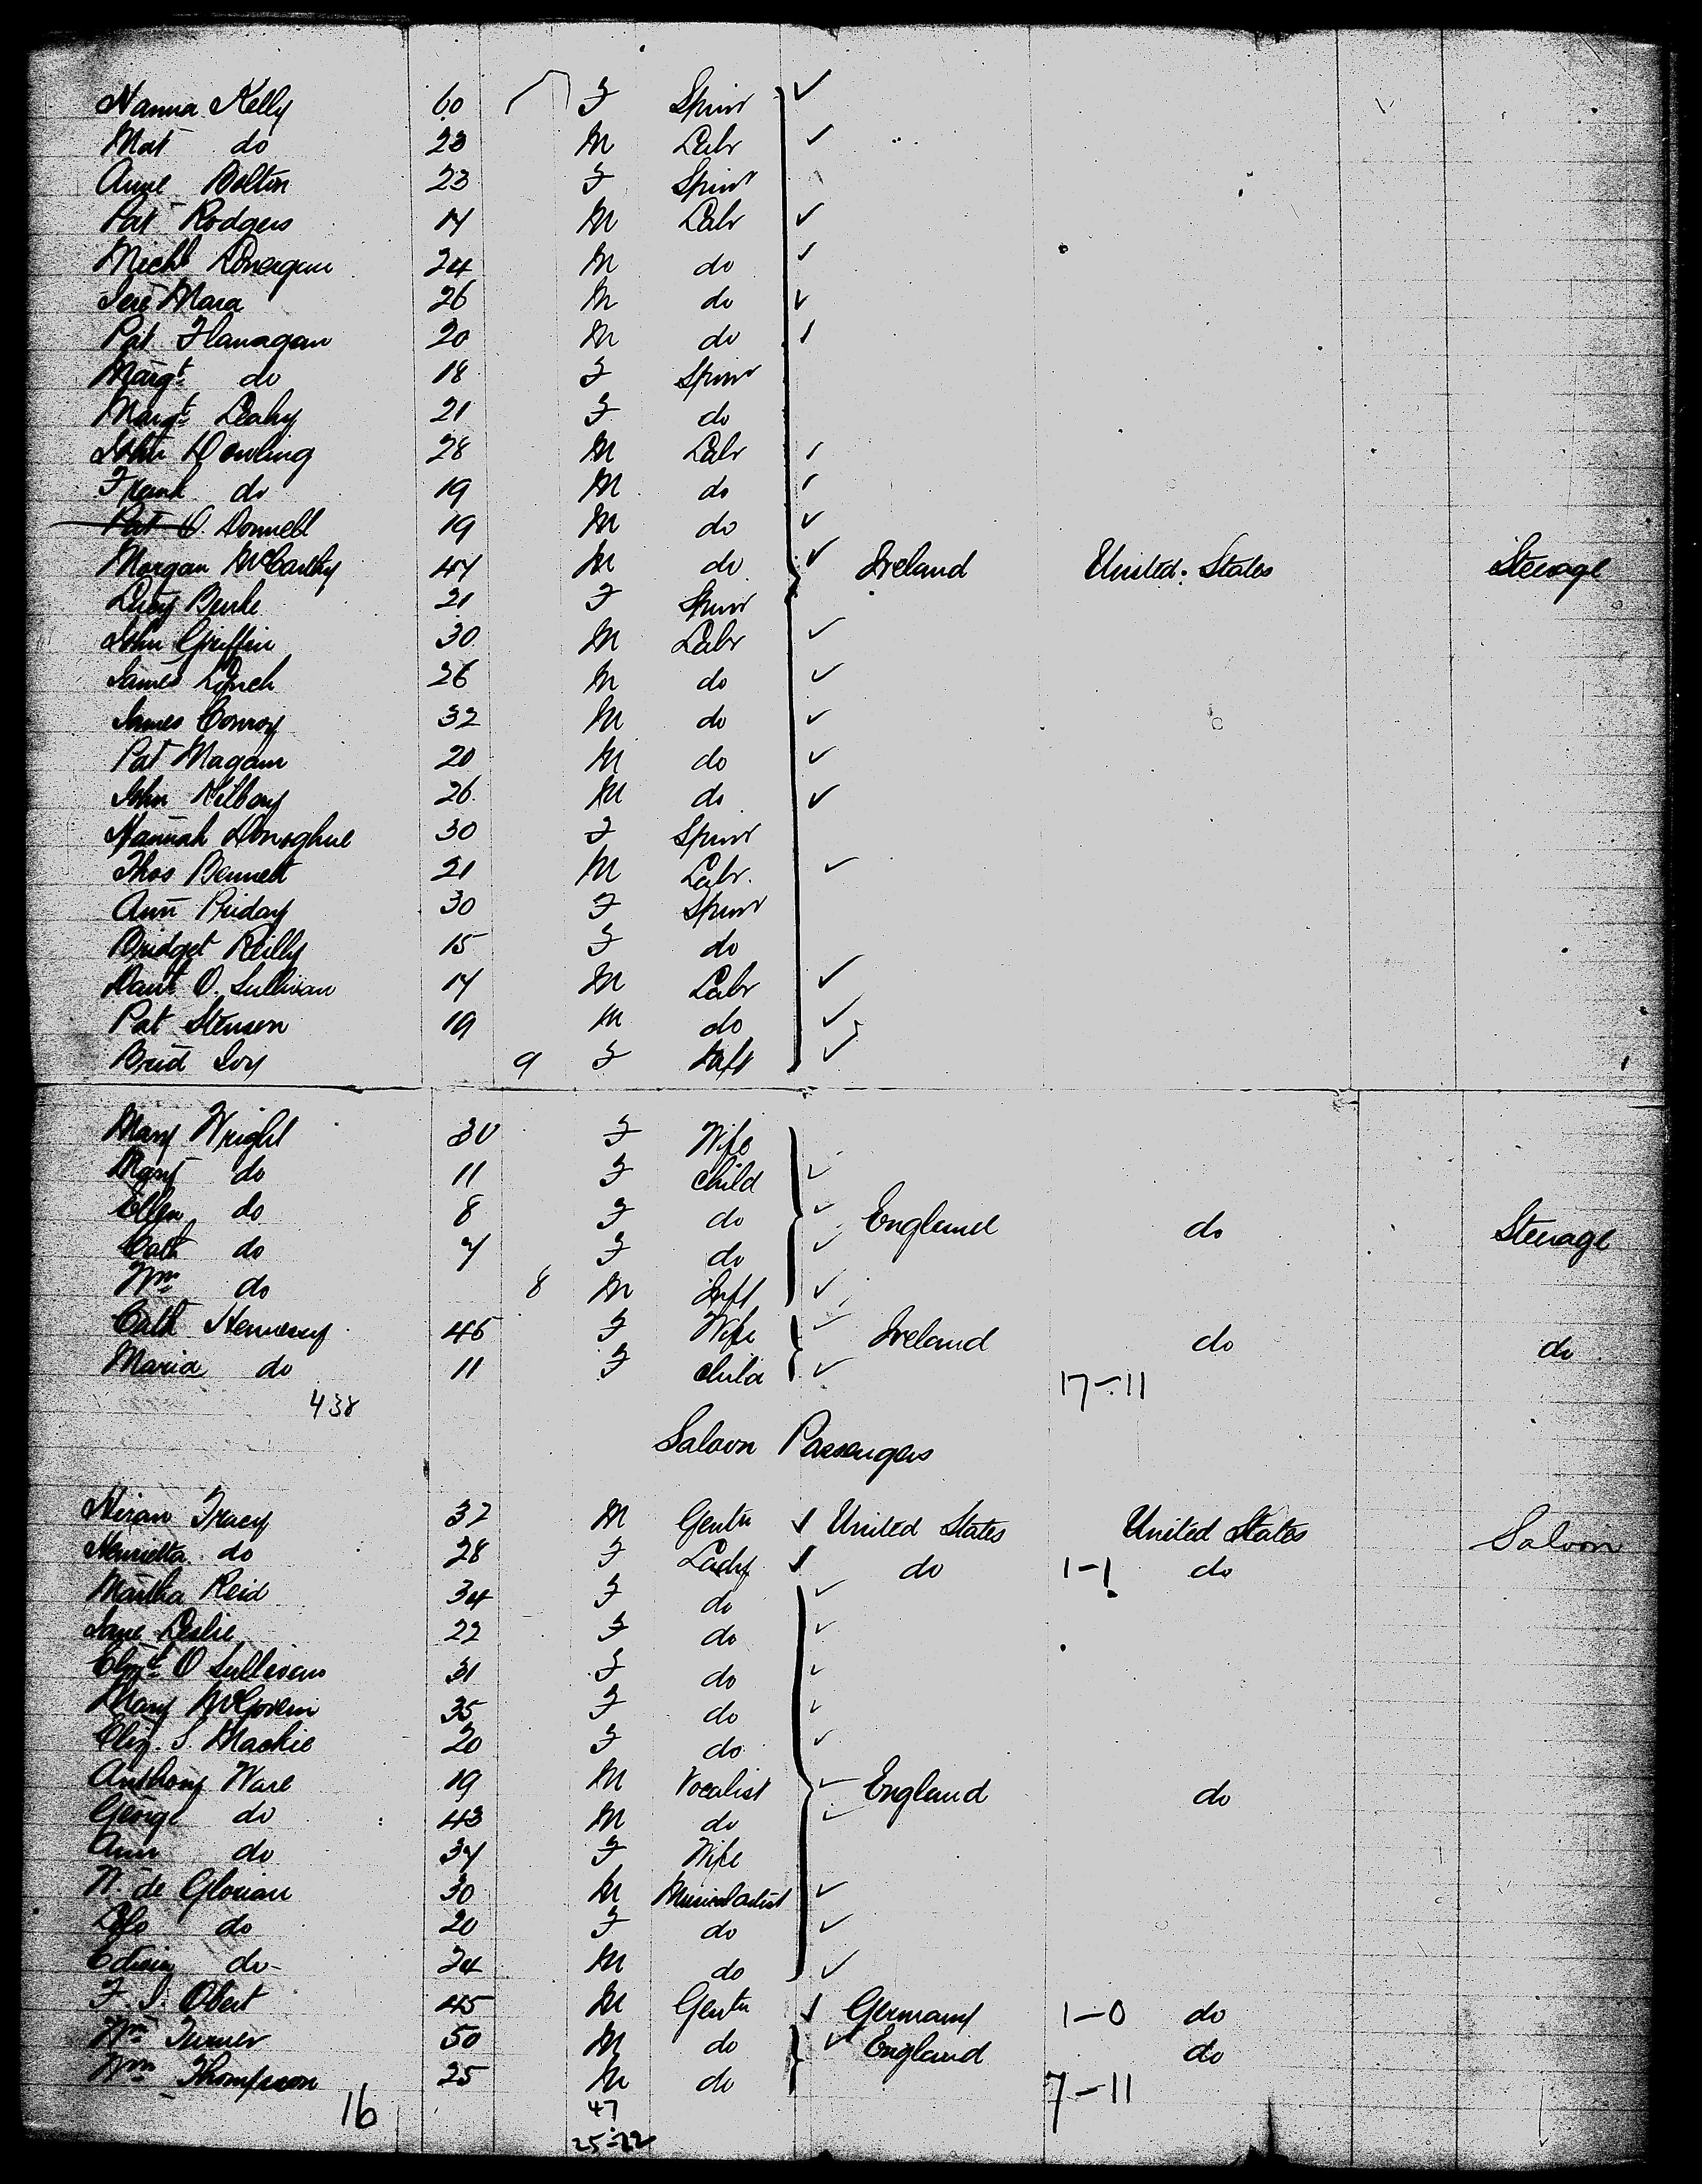 Hanna Kelly 60 F Spinr
Mat do 23 M Labr
Anne Bolton 23 F Spinr
Pat Rodgers 17 M Labr
Michl Donergan 24 M do
Jere Mara 26 M do
Pat Flanagan 20 M do
Margt do 18 F Spinr
Margt Leahy 21 F do
John Dowling 28 M Labr
Frank do 19 M do
Pat O. Donnell 19 M do
Morgan McCarthy 47 M do Ireland United States Steerage
Lucy Burke 21 F Spinr
John Griffin 30 M Labr
James Lynch 26 M do
James Conroy 32 M do
Pat Magann 20 M do
John Kilboy 26 M do
Hannah Donoghue 30 F Spinr
Thos Bennett 21 M Labr.
Ann Priday 30 F Spinr
Bridget Reilly 15 F do
Danl O. Sullivan 17 M Labr
Pat Stenson 19 M do
Brid 9 F Inft
Mary Wright 30 F Wife
Mary do 11 F Child
Ellen do 8 F do England do Steerage
Cath do 7 F do
Wm do 8 M Inft
Cath Hennessy 46 F Wife Ireland do do
Maria do 11 F Child
438 17-11
Saloon Passengers
Hiram Tracy 32 M Gentn United States United States Saloon
Henrietta do 28 F Lady do 1-1 do
Martha Reid 34 F do
Jane Leslie 22 F do
Elizt O Sullivan 31 F do
Mary McGovern 35 F do
Eliz. S. Mackie 20 F do
Anthony Ware 19 M Vocalist England do
George do 43 M do
Ann do 37 F Wife
N. de Glorian 30 M Musical artist
do 20 F do
Edwin do 24 M do
F. J. Obert 45 M Gentn Germany 1-0 do
Wm Turner 50 M do England do
Wm Thompson 25 M do
16 47 7-11
25-22